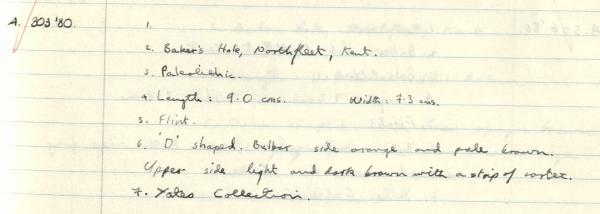 A. 303 '80. 1.
2. Baker's Hole, Northfleet, Kent.
3. Paleolithic.
4. Length: 9.0 cms. Width: 7.3 cms.
5. Flint.
6. 'D' shaped. Bulbar side orange and pale brown.
Upper side light and dark brown with a strip of cortex.
7. Yates Collection.